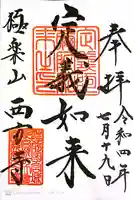 奉拝
令和四年
七月十九日
定義如来
極楽山
西方寺